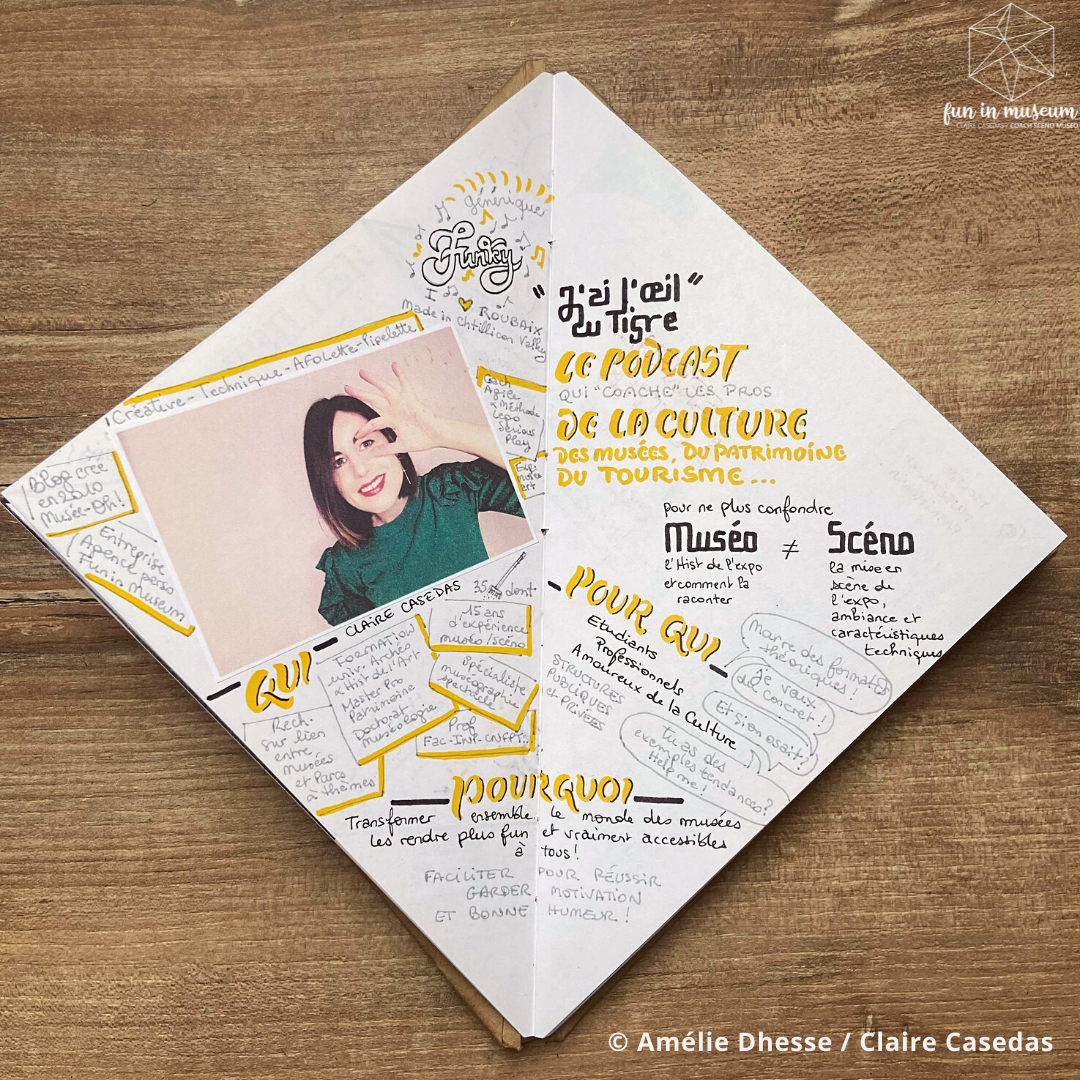 fun in museum
CLAIRE CASEDAS / COACH SCÉNO MUSÉO
générique
Funky
I ROUBAIX
Made in Chtillicon Valley
Créative-Technique-Afolette-Pipelette
Blog créé
en 2010
Musée-Oh!
Entreprise
Agence perso
Fun in Museum
Coach
Agile
& Méthode
Lego
Serious
Play
CLAIRE CASEDAS
35
dont
15 ans
d'expérience
muséo/scéno
QUI
FORMATION
univ. Archéo
& Hist de l'Art
Master Pro
Patrimoine
Doctorat
muséologie
Spécialiste
muséographie
spectacle
Prof
Fac-INP-CNFPT...
Rech.
sur lien
entre
Musées
et Parcs
à thèmes
"J'ai l'œil"
du Tigre
LE PODCAST
QUI "COACHE" LES PROS
DE LA CULTURE
DES MUSÉES, DU PATRIMOINE
DU TOURISME...
pour ne plus confondre
Muséo ≠ Scéno
l'Hist de l'expo
et comment la
raconter
la mise en
scène de
l'expo,
ambiance et
caractéristiques
techniques
POUR QUI
Etudiants
Professionnels
Amoureux de la Culture
STRUCTURES
PUBLIQUES
et PRIVÉES
marre des formations
théoriques!
je veux
du concret!
Et si on osait?
tu as des
exemples tendances?
Help me!
POURQUOI
Transformer ensemble le monde des musées
les rendre plus fun et vraiment accessibles
à tous!
FACILITER POUR RÉUSSIR
GARDER MOTIVATION
ET BONNE HUMEUR!
© Amélie Dhesse / Claire Casedas